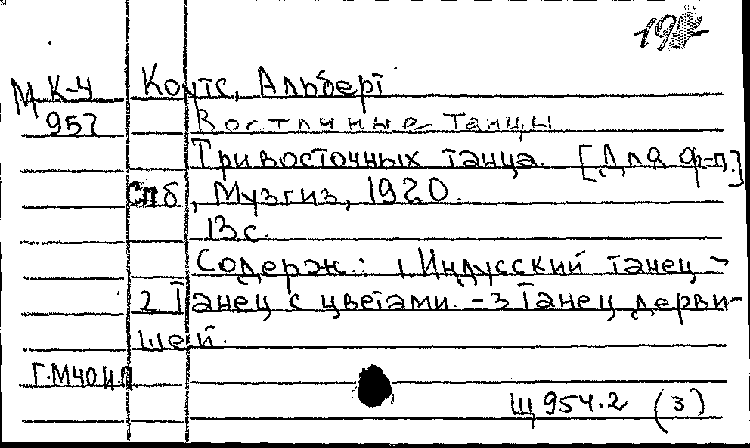 М К-4 Коутс, Альберт
957 Восточные танцы
Три восточных танца. [Для ф-п.]
Спб, Музгиз, 1920.
13с.
Содерж.: 1. Индусский танец -
2 Танец с цветами. - 3 Танец дерви-
шей.
Щ 954.2 (3)